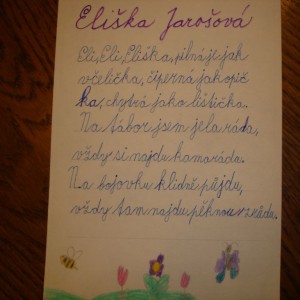 Eliška Jarošová
Eli, Eli, Eliška, pilná jak
včelička, čiperná jak opič
ka, chytrá jako lištička.
Na tábor jsem jela ráda,
vždy si najdu kamaráda.
Na bojovku klidně půjdu,
vždy tam najdu pěknou